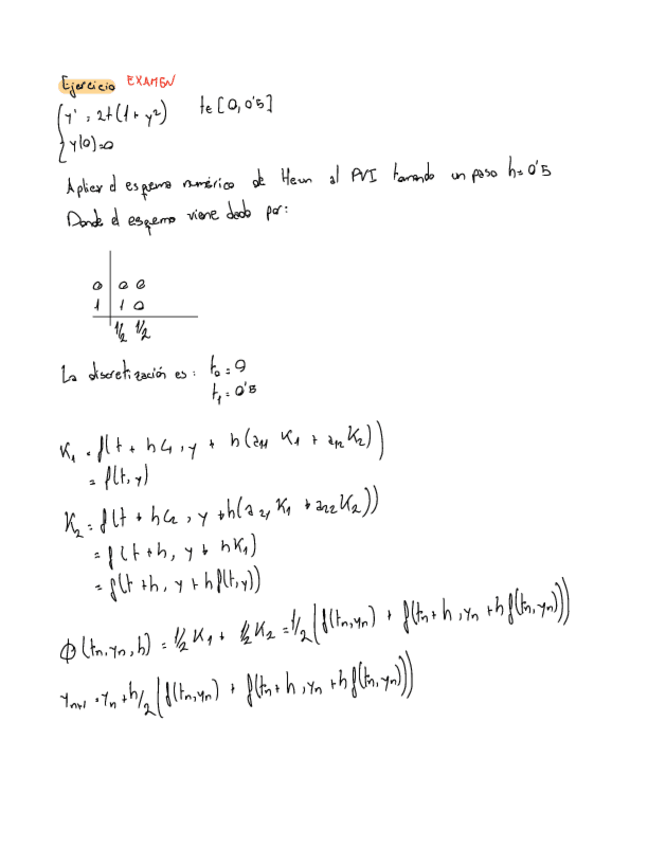 Ejercicio EXAMEN
y' = 2t(1 + y²) t∈[0, 0'5]
y(0)=0
Aplicar el esquema numérico de Heun al PVI tomando un paso h=0'5
Donde el esquema viene dado por:
0 | 0 0
1 | 1 0
1/2 1/2
La discretización es: t₀=0
t₁=0'5
K₁ = f(t + hc₁, y + h(a₁₁ K₁ + a₁₂ K₂))
= f(t, y)
K₂ = f(t + hc₂, y + h(a₂₁ K₁ + a₂₂ K₂))
= f(t + h, y + hK₁)
= f(t + h, y + hf(t, y))
Φ(tₙ, yₙ, h) = 1/2 K₁ + 1/2 K₂ = 1/2 (f(tₙ, yₙ) + f(tₙ + h, yₙ + hf(tₙ, yₙ)))
yₙ₊₁ = yₙ + h/2 (f(tₙ, yₙ) + f(tₙ + h, yₙ + hf(tₙ, yₙ)))